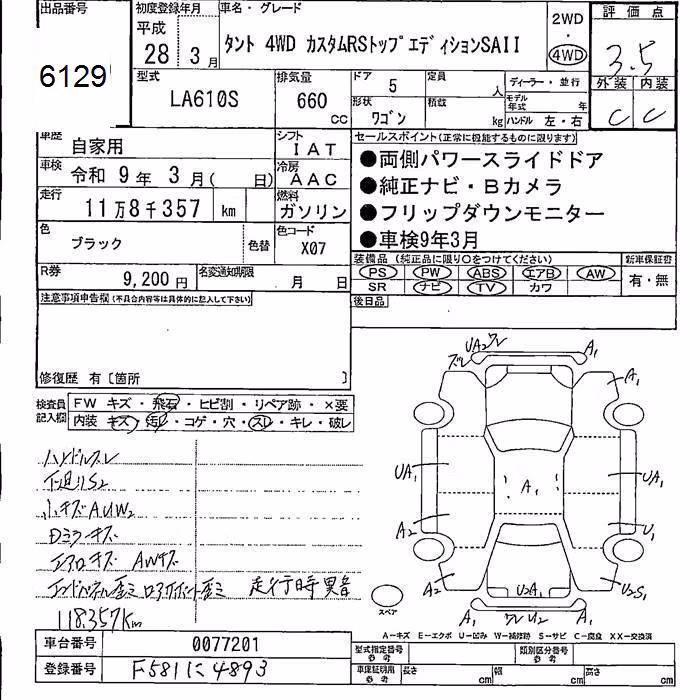 出品番号
6129
初度登録年月
平成
28 3月
車名・グレード
タント 4WD カスタムRSトップエディションSAII
2WD
・
4WD
評価点
3.5
外装 内装
C C
型式
LA610S
排気量
660 CC
ドア 5
形状
ワゴン
定員 人
積載 kg
ディーラー・並行
モデル年式 年
ハンドル 左・右
車歴
自家用
シフト
IAT
車検
令和 9年 3月( 日)
冷房
AAC
走行
11万8千357 km
燃料
ガソリン
色
ブラック
色替
色コード
X07
R券
9,200円
名変通知期限
月 日
セールスポイント(正常に機能するものに限ります)
●両側パワースライドドア
●純正ナビ・Bカメラ
●フリップダウンモニター
●車検9年3月
装備品(純正品に限り○をつけてください)
新車保証書
PS PW ABS エアB AW
SR ナビ TV カワ
有・無
後日品
注意事項申告欄(不具合内容等は具体的に記入して下さい)
修復歴 有〔箇所 〕
検査員記入欄
FW キズ・飛石・ヒビ割・リペア跡・×要
内装 キズ・汚レ・コゲ・穴・スレ・キレ・破レ
ハンドルスレ
下廻りS2
小キズAUW2
Dミラーキズ
エアロキズ AWキズ
走行時異音
118,357Km
UA2 ワレ
ズレ
A1
A1
UA1
UA1
A1
A2
U1
A2
U2A1
U2S1
A1
ワレU2
A1
スペア
A-キズ E-エクボ U-凹み W-補修跡 S-サビ C-腐食 XX-交換済
車台番号
0077201
登録番号
F581に4893
型式指定番号
参考
類別区分番号
参考
車庫証明用
参考
長さ cm
幅 cm
高さ cm